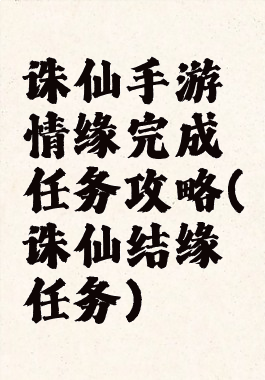 诛仙手游
情缘完成
任务攻略(
诛仙结缘
任务)